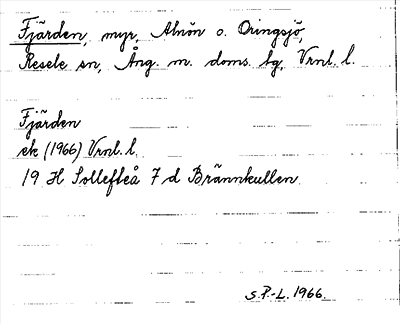 Fjärden, myr, Alnön o. Oringsjö,
Resele sn, Ång. m. doms. bg, Vrnl. l.
Fjärden
ek (1966) Vrnl. l.
19 H Sollefteå 7 d Brännkullen
S.P.-L. 1966.